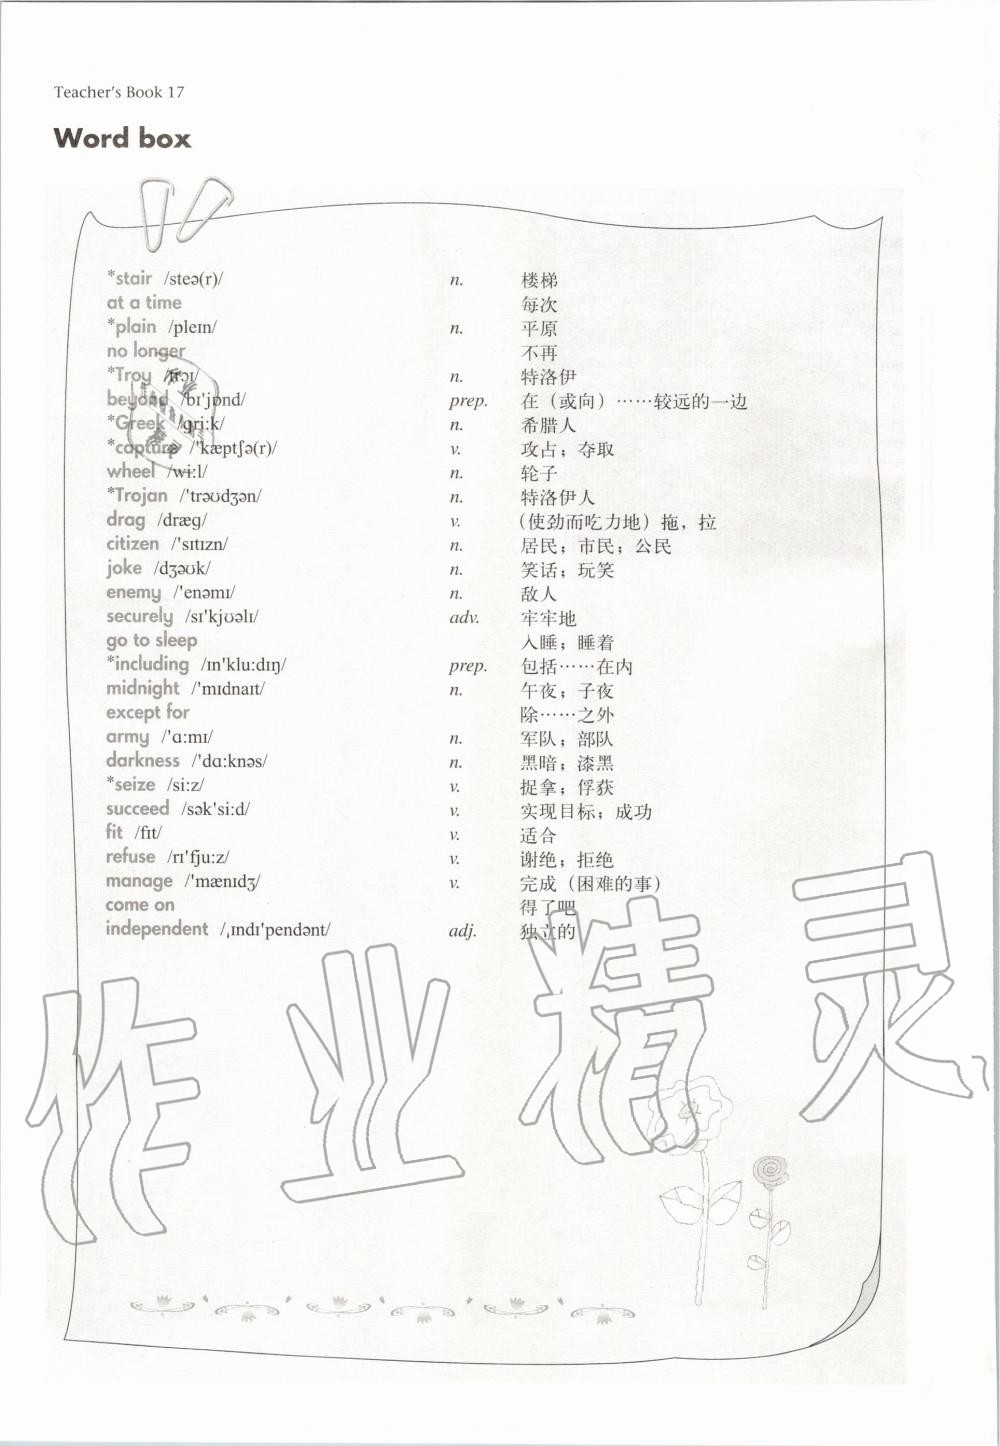 Teacher's Book 17
Word box
*stair /steə(r)/ n. 楼梯
at a time 每次
*plain /pleɪn/ n. 平原
no longer 不再
*Troy /trɔɪ/ n. 特洛伊
beyond /bɪ'jɒnd/ prep. 在（或向）……较远的一边
*Greek /gri:k/ n. 希腊人
*capture /'kæptʃə(r)/ v. 攻占；夺取
wheel /wi:l/ n. 轮子
*Trojan /'trəʊdʒən/ n. 特洛伊人
drag /dræg/ v. （使劲而吃力地）拖，拉
citizen /'sɪtɪzn/ n. 居民；市民；公民
joke /dʒəʊk/ n. 笑话；玩笑
enemy /'enəmɪ/ n. 敌人
securely /sɪ'kjʊəlɪ/ adv. 牢牢地
go to sleep 入睡；睡着
*including /ɪn'klu:dɪŋ/ prep. 包括……在内
midnight /'mɪdnaɪt/ n. 午夜；子夜
except for 除……之外
army /'ɑ:mɪ/ n. 军队；部队
darkness /'dɑ:knəs/ n. 黑暗；漆黑
*seize /si:z/ v. 捉拿；俘获
succeed /sək'si:d/ v. 实现目标；成功
fit /fɪt/ v. 适合
refuse /rɪ'fju:z/ v. 谢绝；拒绝
manage /'mænɪdʒ/ v. 完成（困难的事）
come on 得了吧
independent /ˌɪndɪ'pendənt/ adj. 独立的
作业精灵